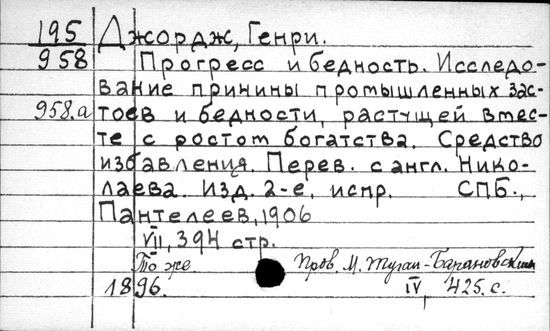 195 Джордж, Генри.
958 Прогресс и бедность. Исследо-
вание принины промышленных зас-
958.а тоев и бедности, растущей вмес-
те с ростом богатства. Средство
избавления. Перев. с англ. Нико-
лаева. Изд. 2-е, испр. СПБ.,
Пантелеев, 1906
VII, 394 стр.
То же. Пров. М. Туган-Барановский
1896. IV 425. с.